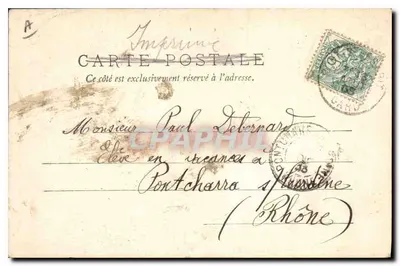 A
Imprimé
CARTE POSTALE
Ce côté est exclusivement réservé à l'adresse.
Monsieur Paul Debernard
Élève en vacances à
Pontcharra s/
(Rhône)
CPAPHIL